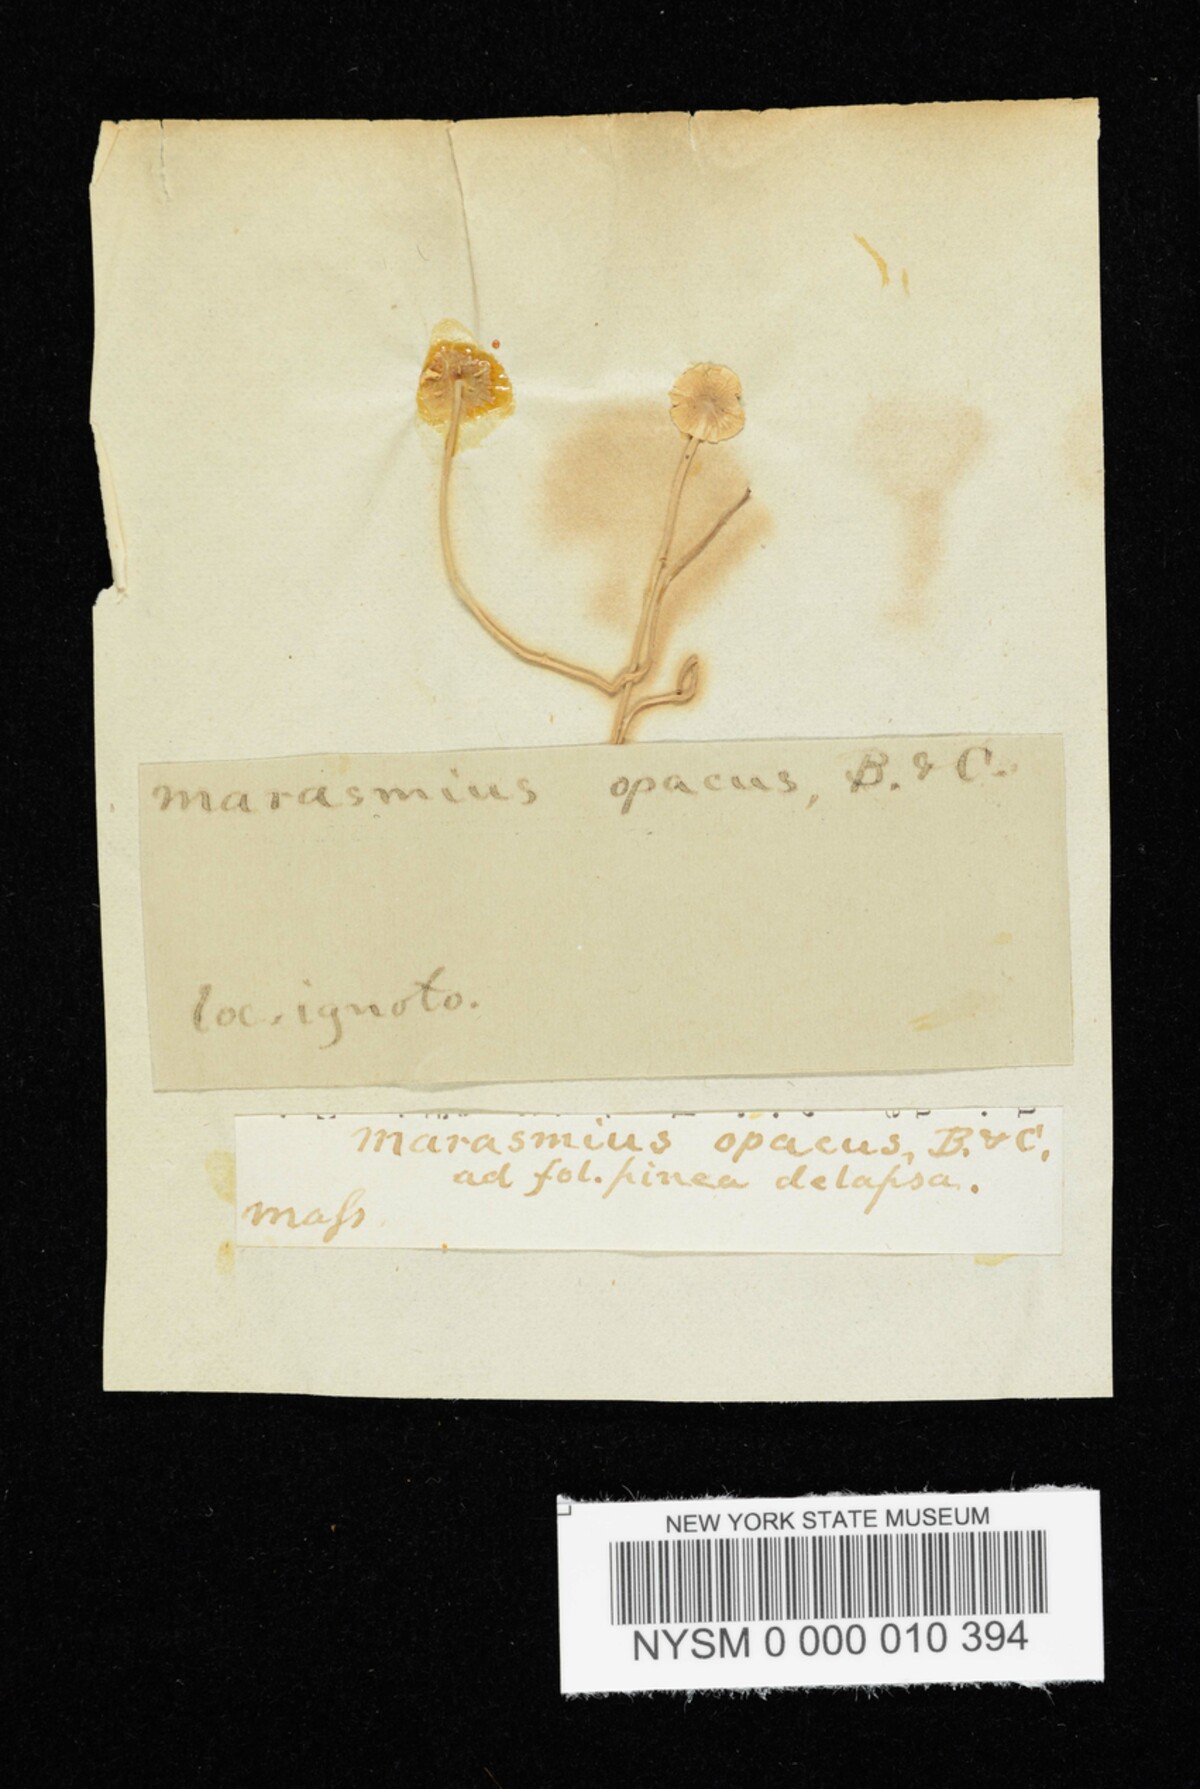 Marasmius opacus, B. & C.
loc. ignoto.
Marasmius opacus, B. & C.
ad fol. pinea delapsa.
Mass
NEW YORK STATE MUSEUM
NYSM 0 000 010 394